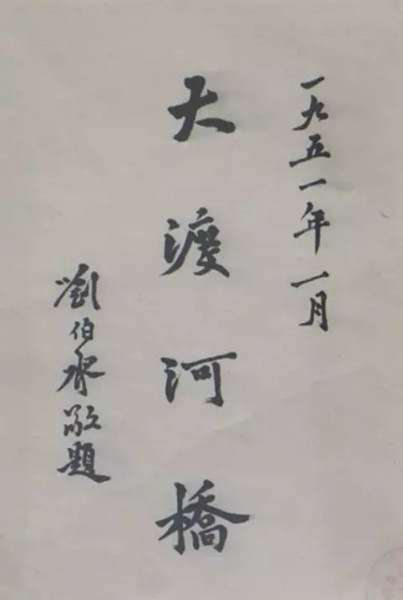 一九五一年一月
大渡河橋
劉伯承敬題